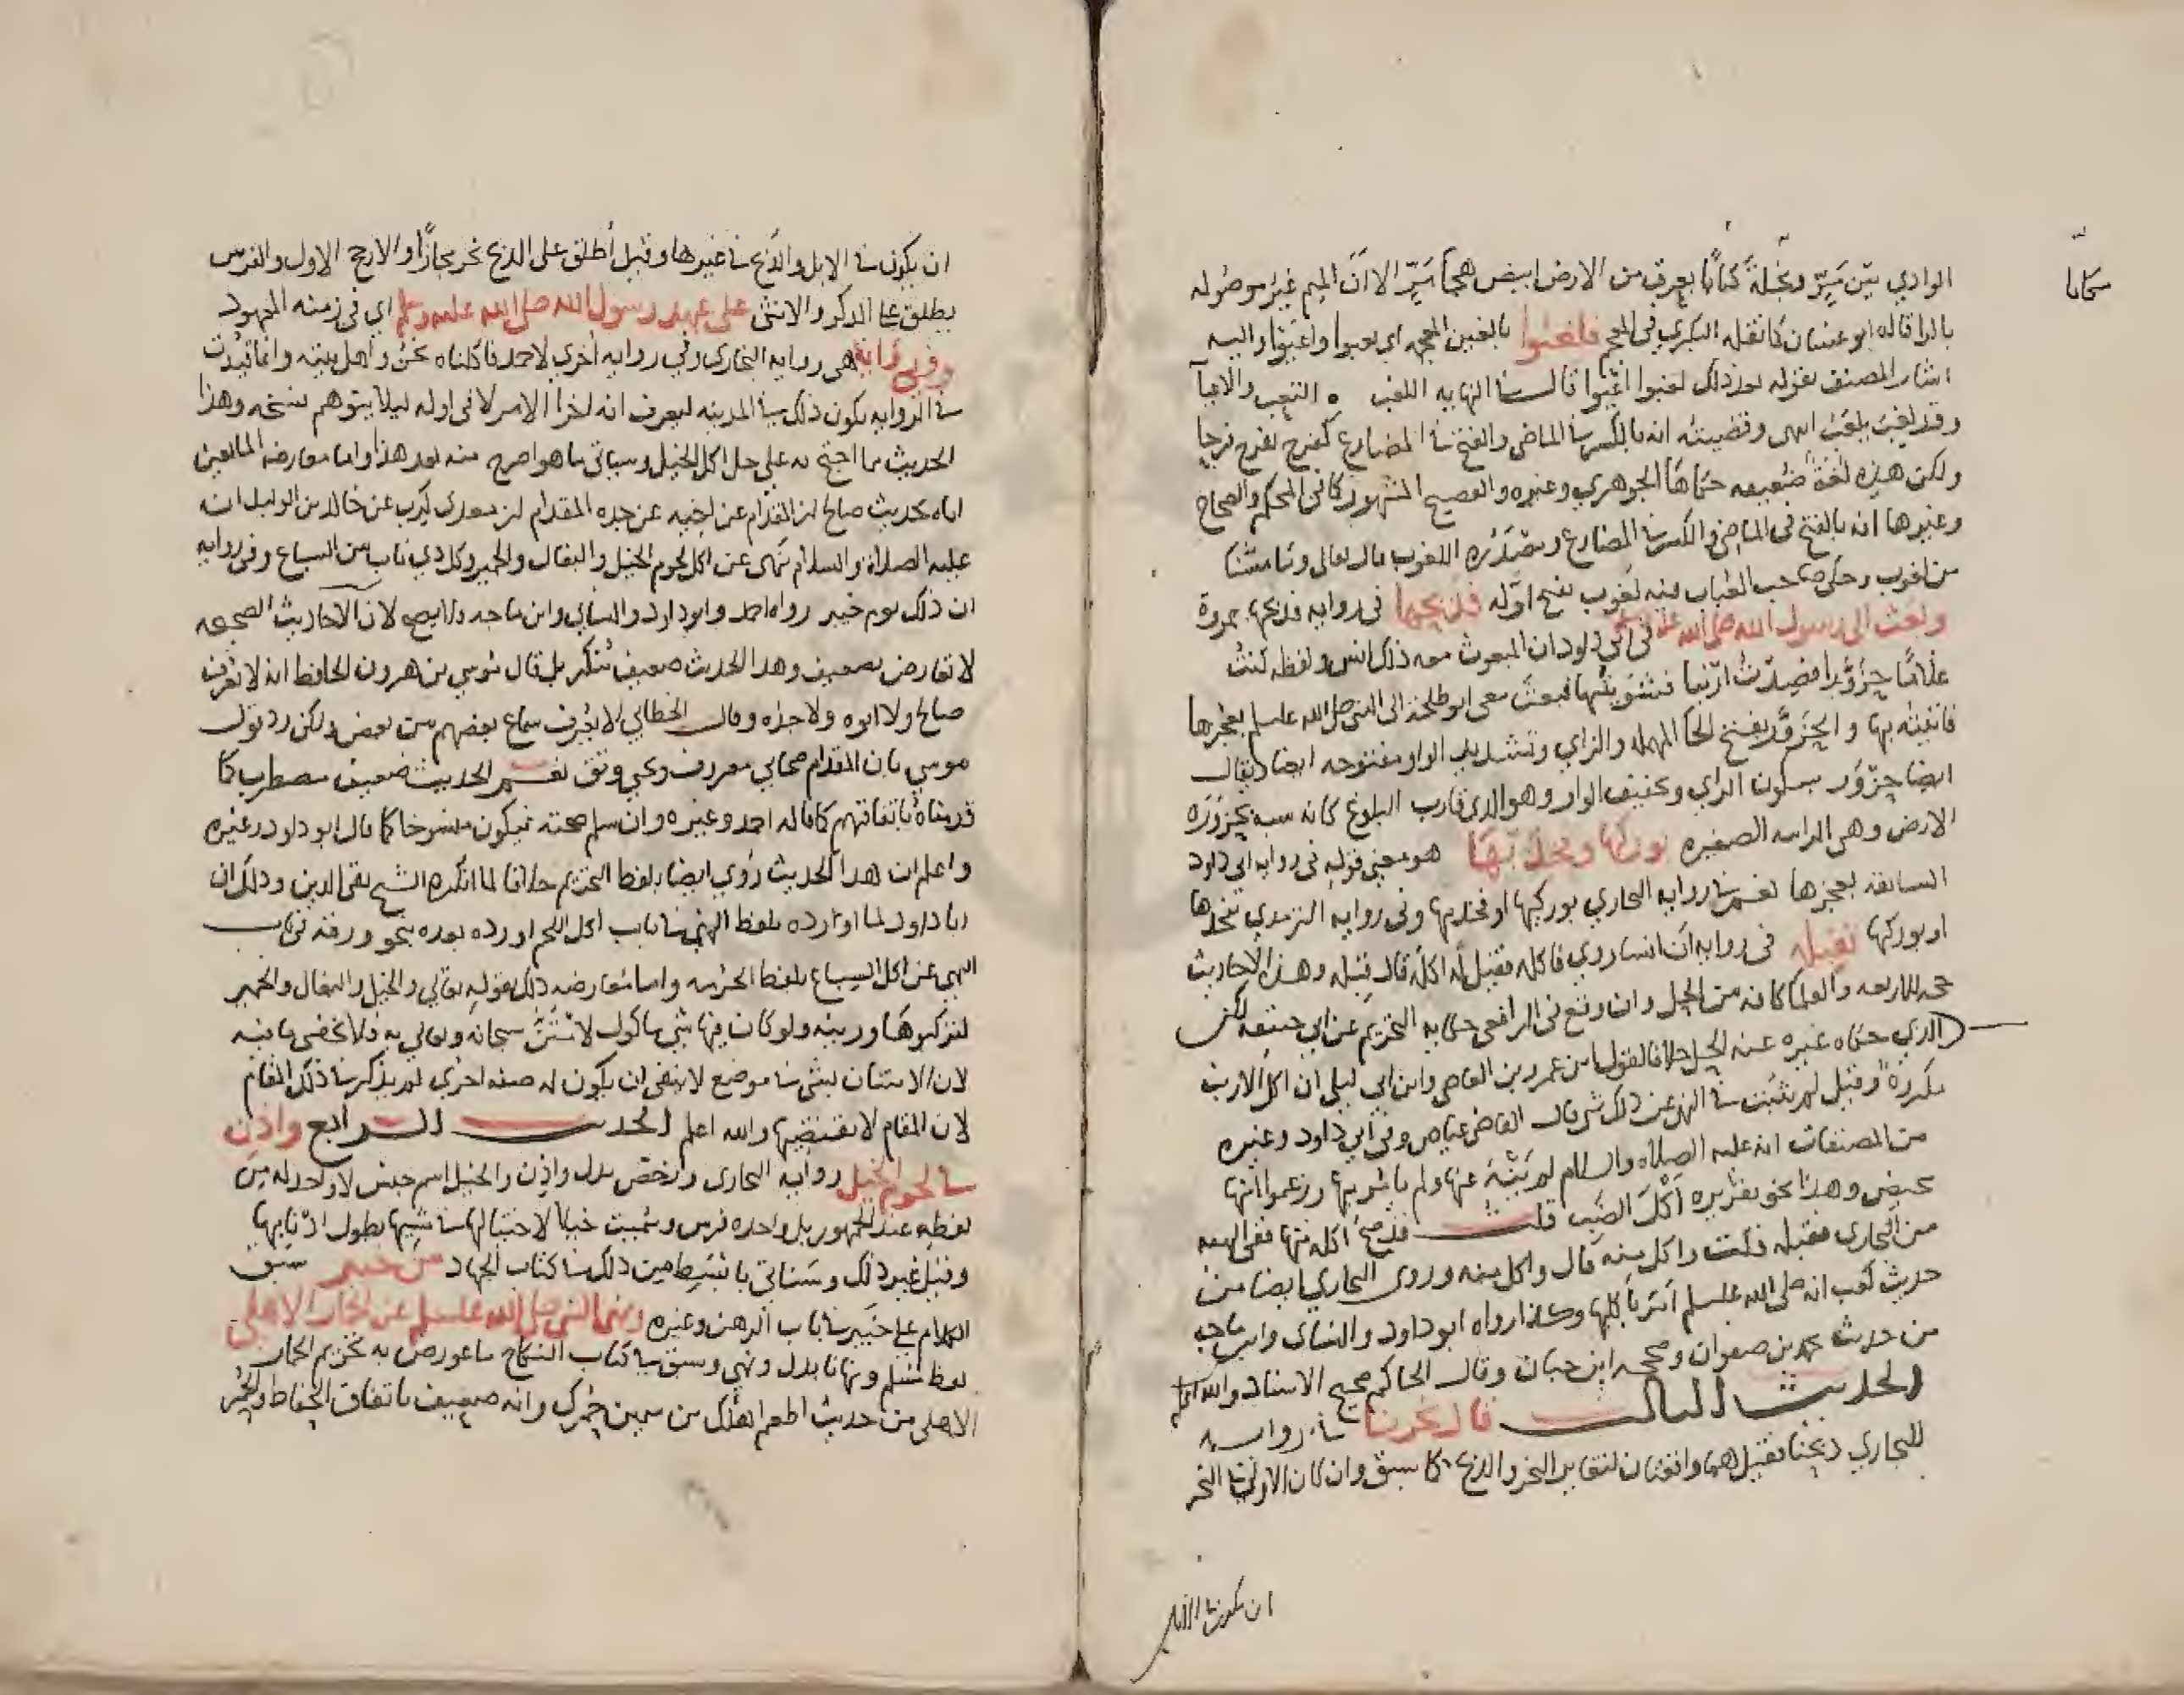 الوادي بين مَرّ ونخلة كتابًا يعرق من الارض ابيض هجا مَرّ الا انَّ الميم غير موصوله
بالرا قاله ابو غسان كما نقله البكري في المعجم فلغبوا بالغين المعجمه اي تعبوا واعيوا واليه
اشار المصنف بقوله بعد ذلك لغبوا اعيوا قال في النهايه اللغب ه التعب والاعيا
وقد لغب يلغب انتهى وقضيته انه بالكسر في الماضي والفتح في المضارع كفرح يفرح فرحا
ولكن هذه لغة ضعيفه حكاها الجوهري وغيره والفصيح المشهور كما في المحكم والصحاح
وغيرها انه بالفتح في الماضي والكسر في المضارع ومصدره اللغوب قال تعالى وما مسنا
من لغوب وحكى صاحب العباب فيه لغوب بفتح اوله فذبحها في روايه فذبحها بمروة
وبعث الى رسول الله صلى الله عليه وسلم في ابي داود ان المبعوث معه ذلك انس ولفظه كنت
غلامًا حزوَّرا فصدت ارنبا فشويتها فبعث معي ابو طلحة الى النبي صلى الله عليه وسلم بعجزها
فاتيته بها والحزوَّر بفتح الحا المهمله والزاي وتشديد الواو مفتوحه ايضا ويقال
ايضا حزْوَر بسكون الزاي وتخفيف الواو وهو الذي قارب البلوغ كانه شبه بحزورَه
الارض وهي الرابيه الصغيره بوركها وفخذيها هو معنى قوله في روايه ابي داود
السابقه بعجزها نعم في روايه البخاري بوركيها او فخذيها وفي روايه الترمذي بفخذها
او بوركها فقبله في روايه ان انسا روي فاكله فقيل له اكله قال قبله وهذه الاحاديث
حجه للاربعه والعلما كافه من الحل وان وقع في الرافعي حكايه التحريم عن ابي حنيفه لكن
الذي حكاه غيره عنه الحل خلافا لقول ابن عمرو بن العاص وابن ابي ليلى ان اكل الارنب
مكروه وقيل لم يثبت في النهي عن ذلك شي قال القاضي عياض وفي ابي داود وغيره
من المصنفات انه عليه الصلاه والسلام لم يَنْهَ عنها ولم يامر بها وزعموا انها
تحيض وهذا نحو تقريره اكل الضب قلت قد صح اكله منها ففي الهبه
من البخاري فقبله قلت واكل منه قال واكل منه وروى البخاري ايضا من
حديث كعب انه صلى الله عليه وسلم امر باكلها وكذا رواه ابو داود والنسائي وابن ماجه
من حديث محمد بن صفوان وصححه ابن حبان وقال الحاكم صحيح الاسناد والله اعلم
الحديث الثالث قال نحرنا في روايه
للبخاري ذبحنا فقيل هما واقعتان لتغاير النحر والذبح كما سبق وان كان الاولى في النحر
ان يكون في الابل
ان يكون في الابل والذبح في غيرها وقيل اُطلق على الذبح نحر مجازًا والارجح الاول والفرس
يطلق على الذكر والانثى على عهد رسول الله صلى الله عليه وسلم اي في زمنه المعهود
وفي رواية هي روايه البخاري وفي روايه اخرى لاحمد فاكلناه نحن واهل بيته وانما قيدت
في الروايه بكون ذلك في المدينه ليعرف انه اخرا الامر لا في اوله ليلا يتوهم نسخه وهذا
الحديث مما احتج به على حل اكل الخيل وسياتي ما هو اصرح منه بعد هذا واما معارضه المانعين
اياه بحديث صالح بن المقدام عن ابيه عن جده المقدام بن معدي كرب عن خالد بن الوليد انه
عليه الصلاة والسلام نهى عن اكل لحوم الخيل والبغال والحمير وكل ذي ناب من السباع وفي روايه
ان ذلك يوم خيبر رواه احمد وابو داود والنسائي وابن ماجه ولا يصح لان الاحاديث الصحيحه
لا تعارض بضعيف وهذا الحديث ضعيف مُنكر بل قال موسى بن هرون الحافظ انه لا يعرف
صالح ولا ابوه ولا جده وقال الخطابي لا يُعرف سماع بعضهم من بعض ولكن رد قول
موسى بان المقدام صحابي معروف ويحيى وثق نعم الحديث ضعيف مضطرب كما
قدمناه باتفاقهم كما قاله احمد وغيره وان سلم صحته فيكون منسوخا كما قال ابو داود وغيره
واعلم ان هذا الحديث رُوي ايضا بلفظ التحريم خلافا لما انكره الشيخ تقي الدين وذلك ان
ابا داود لما اورده بلفظ النهي في باب اكل اللحم اورده بعده بنحو ورقه في باب
النهي عن اكل السباع بلفظ الحرمه واما معارضه ذلك بقوله تعالى والخيل والبغال والحمير
لتركبوها وزينه ولو كان فيها شي ماكول لامتنَّ سبحانه وتعالى به فلا يخفى ما فيه
لان الامتنان بشي في موضع لا ينفي ان يكون له صفه اخرى لم يذكر في ذلك المقام
لان المقام لا يقتضيها والله اعلم الحديث الرابع واذن
في لحوم الخيل روايه البخاري ورخص بدل واذن والخيل اسم جنس لا واحد له من
لفظه عند الجمهور بل واحده فرس وسُميت خيلا لاختيالها في مشيها بطول اذنابها
وقيل غير ذلك وسياتي بابسط من ذلك في كتاب الجهاد من خيبر سبق
الكلام على خيبر في باب الرهن وغيره ونهى النبي صلى الله عليه وسلم عن الحمار الاهلي
لفظ مسلم ونهانا بدل ونهى وسبق في كتاب النكاح ما عورض به تحريم الحمار
الاهلي من حديث اطعم اهلك من سمين حمرك وانه ضعيف باتفاق الحفاظ والحمر